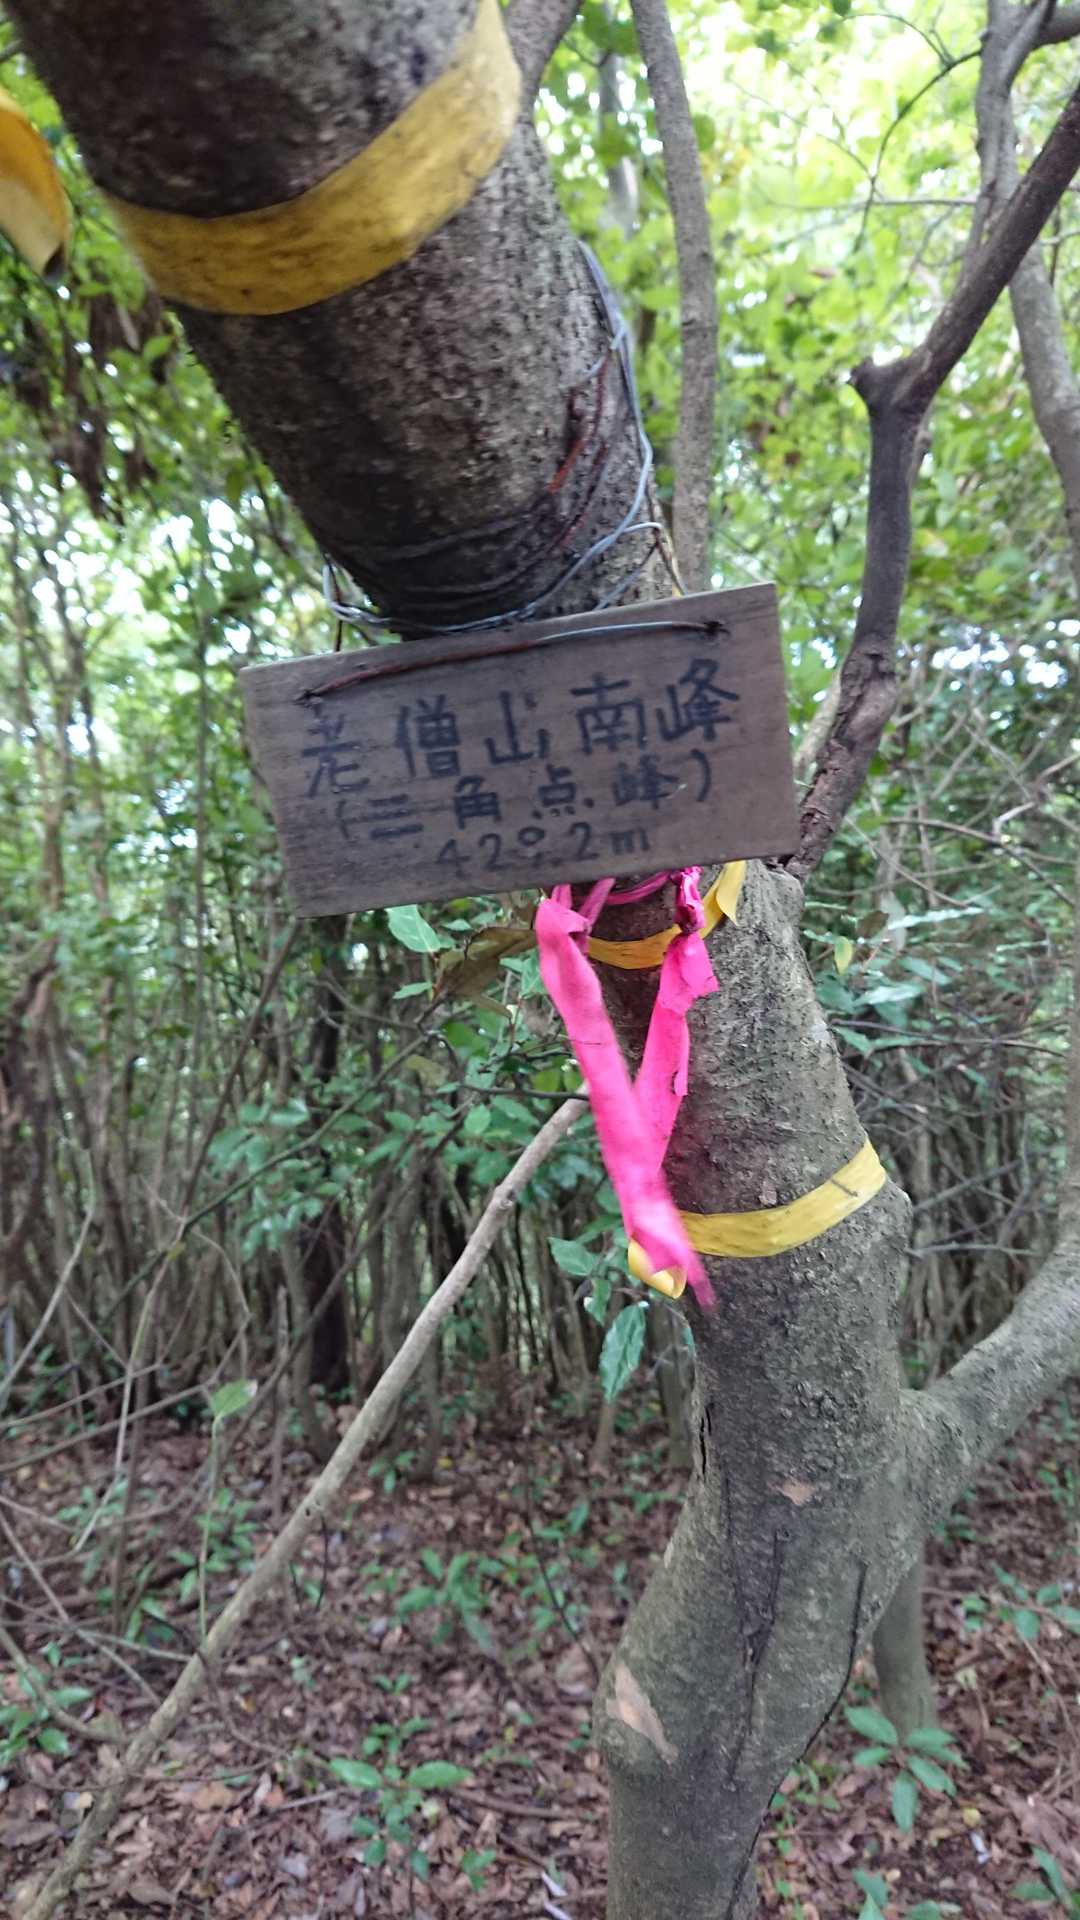 老僧山南峰
(三角点峰)
429.2m